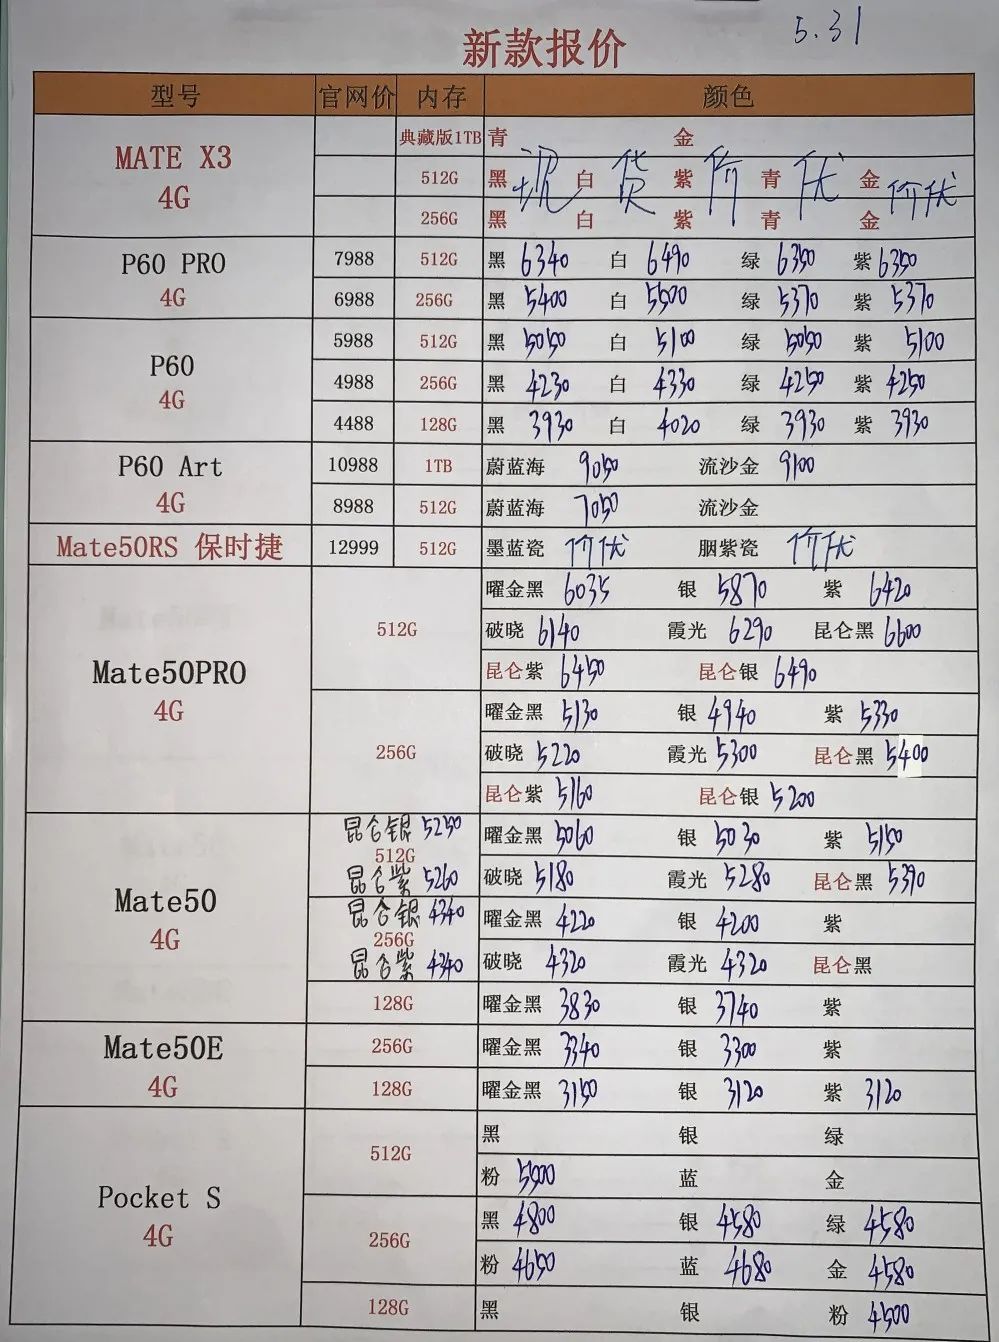 5.31
新款报价
型号 官网价 内存 颜色
MATE X3 4G
典藏版1TB 青 金
512G 黑 白 紫 青 金
现货价优 价优
256G 黑 白 紫 青 金
P60 PRO 4G
7988 512G 黑 6340 白 6490 绿 6350 紫 6350
6988 256G 黑 5400 白 5500 绿 5370 紫 5370
P60 4G
5988 512G 黑 5050 白 5100 绿 5050 紫 5100
4988 256G 黑 4230 白 4330 绿 4250 紫 4250
4488 128G 黑 3930 白 4020 绿 3930 紫 3930
P60 Art 4G
10988 1TB 蔚蓝海 9050 流沙金 9100
8988 512G 蔚蓝海 7050 流沙金
Mate50RS 保时捷 12999 512G 墨蓝瓷 价优 胭紫瓷 价优
Mate50PRO 4G
512G 曜金黑 6035 银 5870 紫 6420
破晓 6140 霞光 6290 昆仑黑 6600
昆仑紫 6450 昆仑银 6490
256G 曜金黑 5130 银 4940 紫 5330
破晓 5220 霞光 5300 昆仑黑 5400
昆仑紫 5160 昆仑银 5200
Mate50 4G
昆仑银 5250 曜金黑 5060 银 5030 紫 5150
512G
昆仑紫 5260 破晓 5180 霞光 5280 昆仑黑 5390
昆仑银 4340 曜金黑 4220 银 4200 紫
256G
昆仑紫 4340 破晓 4320 霞光 4320 昆仑黑
128G 曜金黑 3830 银 3740 紫
Mate50E 4G
256G 曜金黑 3340 银 3300 紫
128G 曜金黑 3150 银 3120 紫 3120
Pocket S 4G
512G 黑 银 绿
粉 5900 蓝 金
256G 黑 4800 银 4580 绿 4580
粉 4650 蓝 4680 金 4580
128G 黑 银 粉 4500